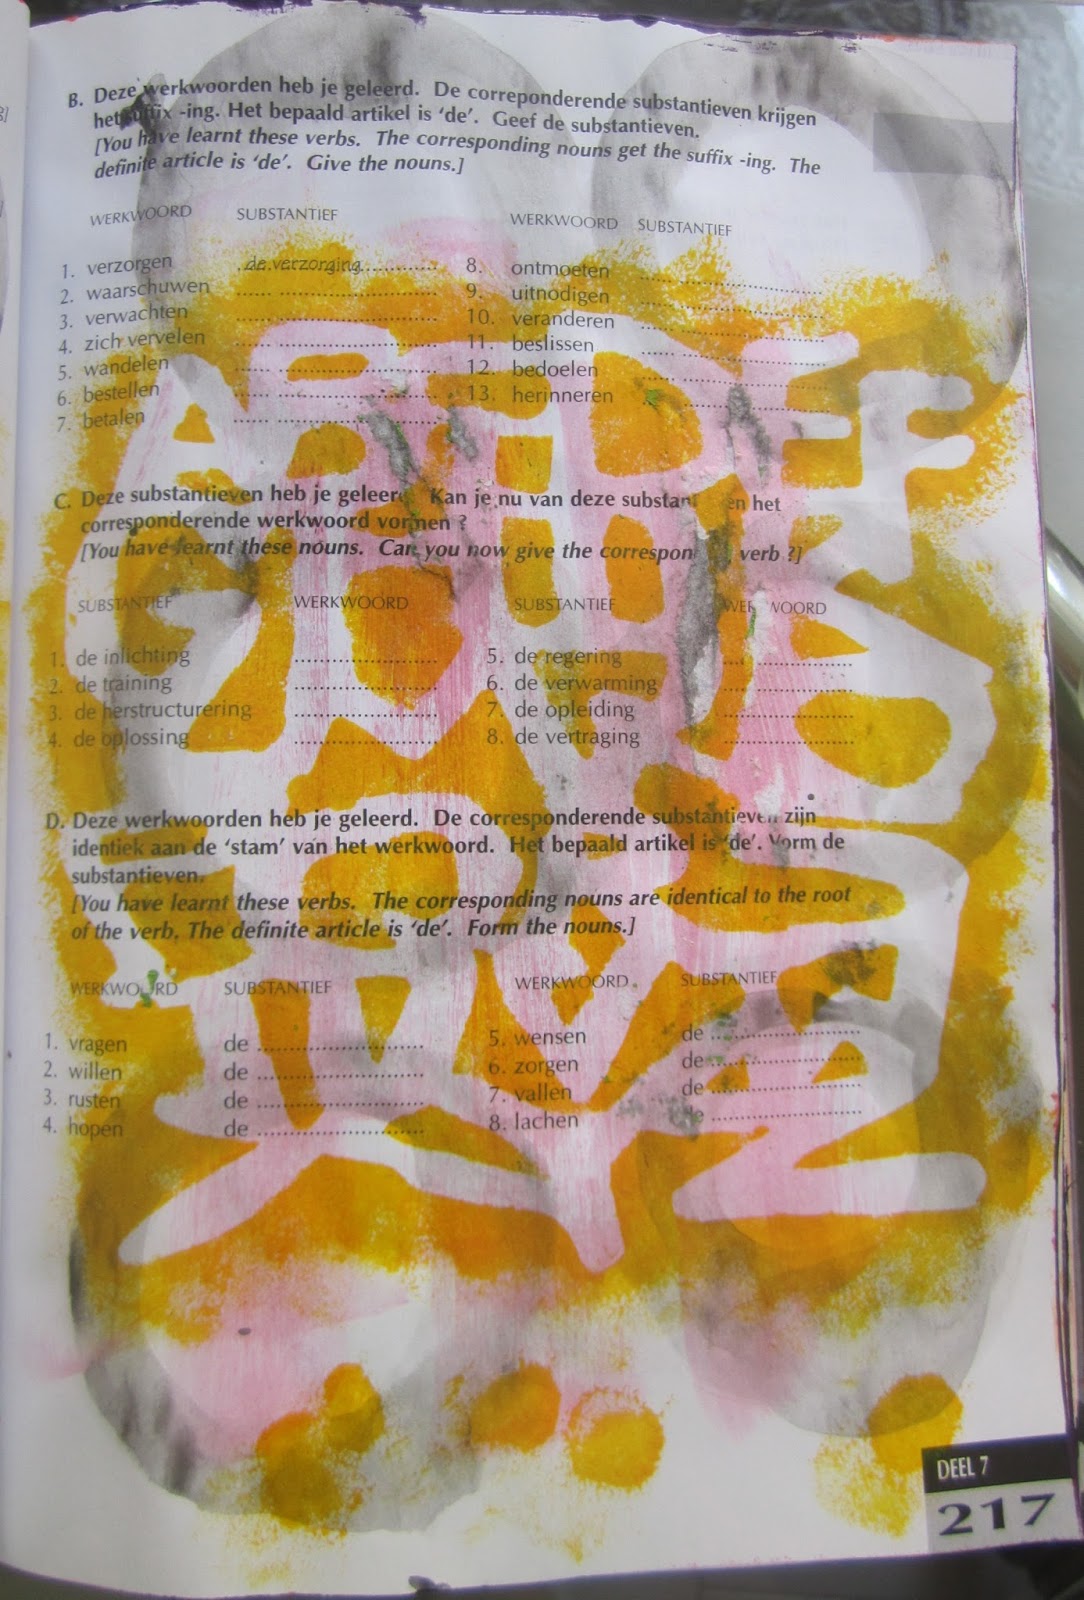 B. Deze werkwoorden heb je geleerd. De correponderende substantieven krijgen
het suffix -ing. Het bepaald artikel is 'de'. Geef de substantieven.
[You have learnt these verbs. The corresponding nouns get the suffix -ing. The
definite article is 'de'. Give the nouns.]
WERKWOORD SUBSTANTIEF
1. verzorgen de verzorging
2. waarschuwen
3. verwachten
4. zich vervelen
5. wandelen
6. bestellen
7. betalen
WERKWOORD SUBSTANTIEF
8. ontmoeten
9. uitnodigen
10. veranderen
11. beslissen
12. bedoelen
13. herinneren
C. Deze substantieven heb je geleerd. Kan je nu van deze substantieven het
corresponderende werkwoord vormen ?
[You have learnt these nouns. Can you now give the corresponding verb ?]
SUBSTANTIEF WERKWOORD
1. de inlichting
2. de training
3. de herstructurering
4. de oplossing
SUBSTANTIEF WERKWOORD
5. de regering
6. de verwarming
7. de opleiding
8. de vertraging
D. Deze werkwoorden heb je geleerd. De corresponderende substantieven zijn
identiek aan de 'stam' van het werkwoord. Het bepaald artikel is 'de'. Vorm de
substantieven.
[You have learnt these verbs. The corresponding nouns are identical to the root
of the verb. The definite article is 'de'. Form the nouns.]
WERKWOORD SUBSTANTIEF
1. vragen de
2. willen de
3. rusten de
4. hopen de
WERKWOORD SUBSTANTIEF
5. wensen de
6. zorgen de
7. vallen de
8. lachen de
DEEL 7
217